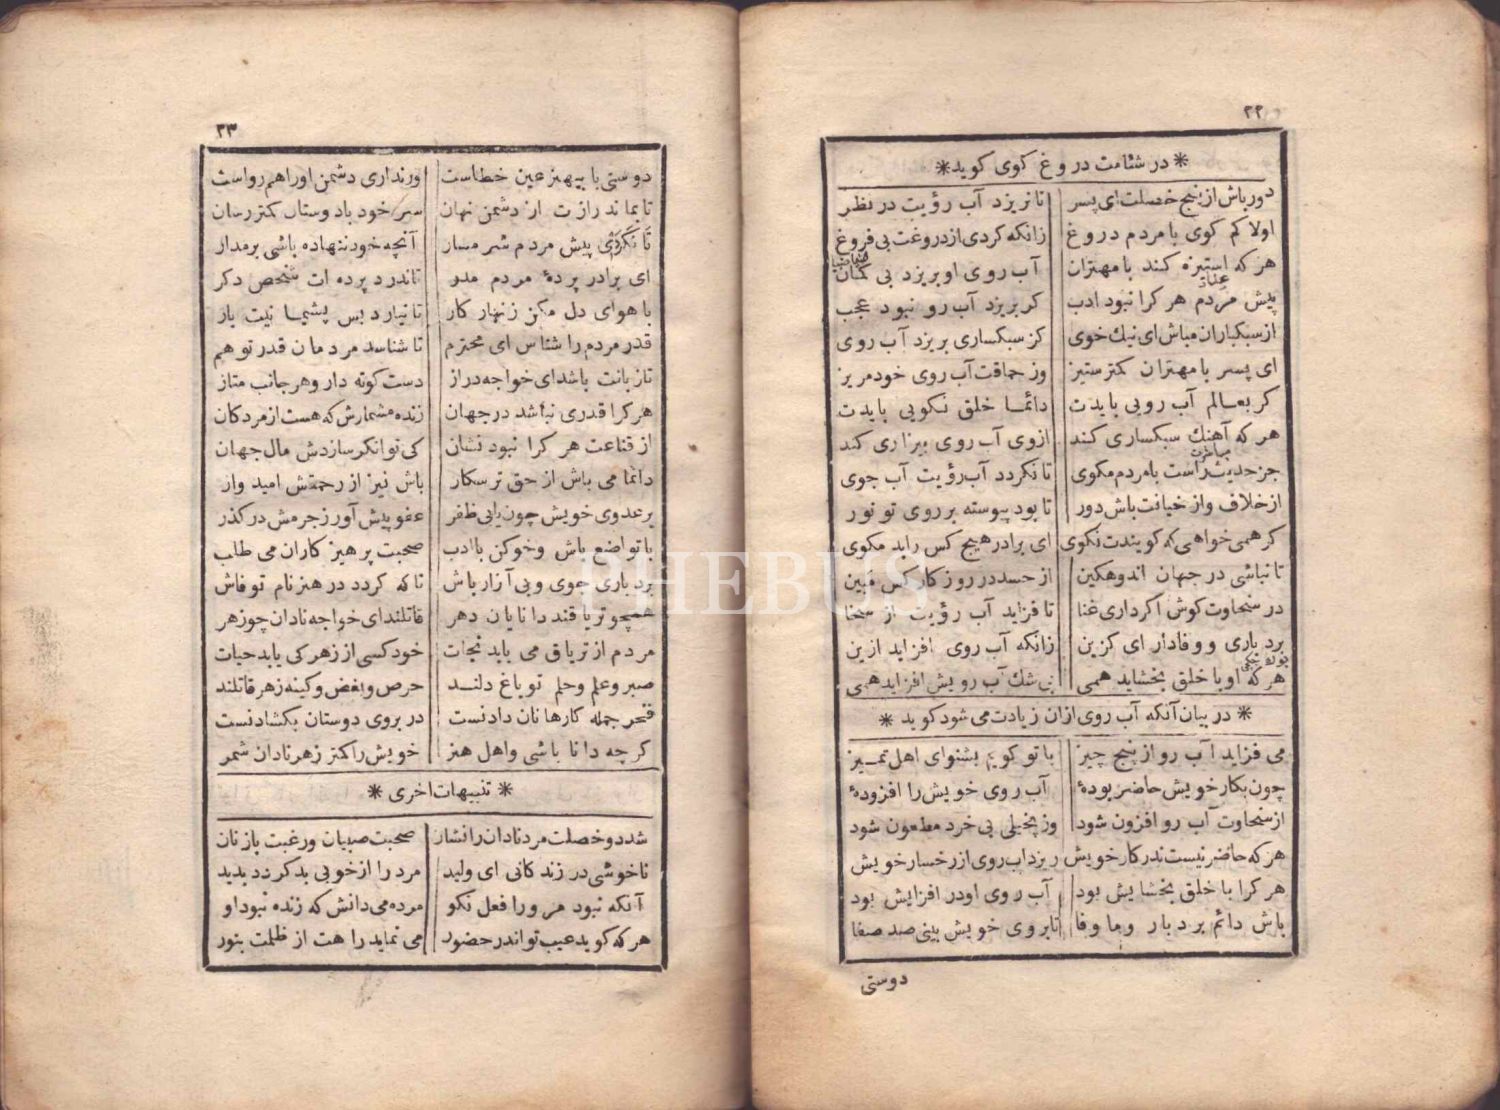 ۲۲
* در شئامت دروغ کوی کوید *
دور باش از پنج خصلت ای پسر تا نریزد آب رؤیت در نظر
اولا کم کوی با مردم دروغ زانکه کردی از دروغت بی فروغ
هر که استیزه کند با مهتران آب روی او بریزد بی کمان
پیش مردم هر کرا نبود ادب کر بریزد آب رو نبود عجب
از سبکباران مباش ای نیك خوی کز سبکساری بریزد آب روی
ای پسر با مهتران کمتر ستیز وز حماقت آب روی خود مریز
کر بعالم آب رویی بایدت دائما خلق نکویی بایدت
هر که آهنك سبکساری کند ازوی آب روی بیزاری کند
جز حدیث راست با مردم مکوی تا نکردد آب رؤیت آب جوی
از خلاف واز خیانت باش دور تا بود پیوسته بر روی تو نور
کر همی خواهی که کویندت نکوی ای برادر هیچ کس را بد مکوی
تا نباشی در جهان اندوهکین از حسد در روز کار کس مبین
در سخاوت کوش اکر داری غنا تا فزاید آب رؤیت از سخا
برد باری ووفادار ای کزین زانکه آب روی افزاید ازین
هر که او با خلق بخشاید همی بی شك آب رویش افزاید همی
* در بیان آنکه آب روی ازان زیادت می شود کوید *
می فزاید آب رو از پنج چیز با تو کویم بشنو ای اهل تمییز
چون بکار خویش حاضر بودهٔ آب روی خویش را افزودهٔ
از سخاوت آب رو افزون شود وز بخیلی بی خرد مطعون شود
هر که حاضر نیست ندر کار خویش ریزد اب روی از رخسار خویش
هر کرا با خلق بخشایش بود آب روی اودر افزایش بود
باش دائم برد بار وما وفا تا بروی خویش بینی صد صفا
دوستی
۲۳
دوستی با بیهنر عین خطاست ور نداری دشمن اورا هم رواست
تا بماند رازت از دشمن نهان سر خود با دوستان کمتر رسان
تا نکردی پیش مردم شرمسار آنچه خود ننهاده باشی بر مدار
ای برادر پردهٔ مردم مدر تا ندرد پرده ات شخص دکر
با هوای دل مکن زنهار کار تا نیارد پس پشیمانیت بار
قدر مردم را شناس ای محترم تا شناسد مردمان قدر تو هم
تا زبانت باشد ای خواجه دراز دست کوته دار وهر جانب متاز
هر کرا قدری نباشد در جهان زنده مشمارش که هست از مردکان
از قناعت هر کرا نبود نشان کی توانکر سازدش مال جهان
دائما می باش از حق ترسکار باش نیز از رحمتش امید وار
بر عدوی خویش چون یابی ظفر عفو پیش آور زجرمش در کذر
با تواضع باش وخو کن با ادب صحبت پرهیز کاران می طلب
برد باری جوی وبی آزار باش تا که کردد در هنر نام تو فاش
همچو تریاقند دانایان دهر قاتلند ای خواجه نادان چو زهر
مردم از تریاق می یابد نجات خود کسی از زهر کی یابد حیات
صبر وعلم وحلم تو باغ دلند حرص وبغض وکینه زهر قاتلند
فخر جمله کارها نان دادنست در بروی دوستان بکشادنست
کر چه دانا باشی واهل هنر خویش را کمتر زهر نادان شمر
* تنبیهات اخری *
شد دو خصلت مرد نادان را نشان صحبت صبیان ورغبت بازنان
ناخوشی در زندکانی ای ولید مرد را از خوبی بد کردد بدید
آنکه نبود مر ورا فعل نکو مرده می دانش که زنده نبود او
هر که کوید عیب تواندر حضور می نماید راهت از ظلمت بنور
PHEBUS